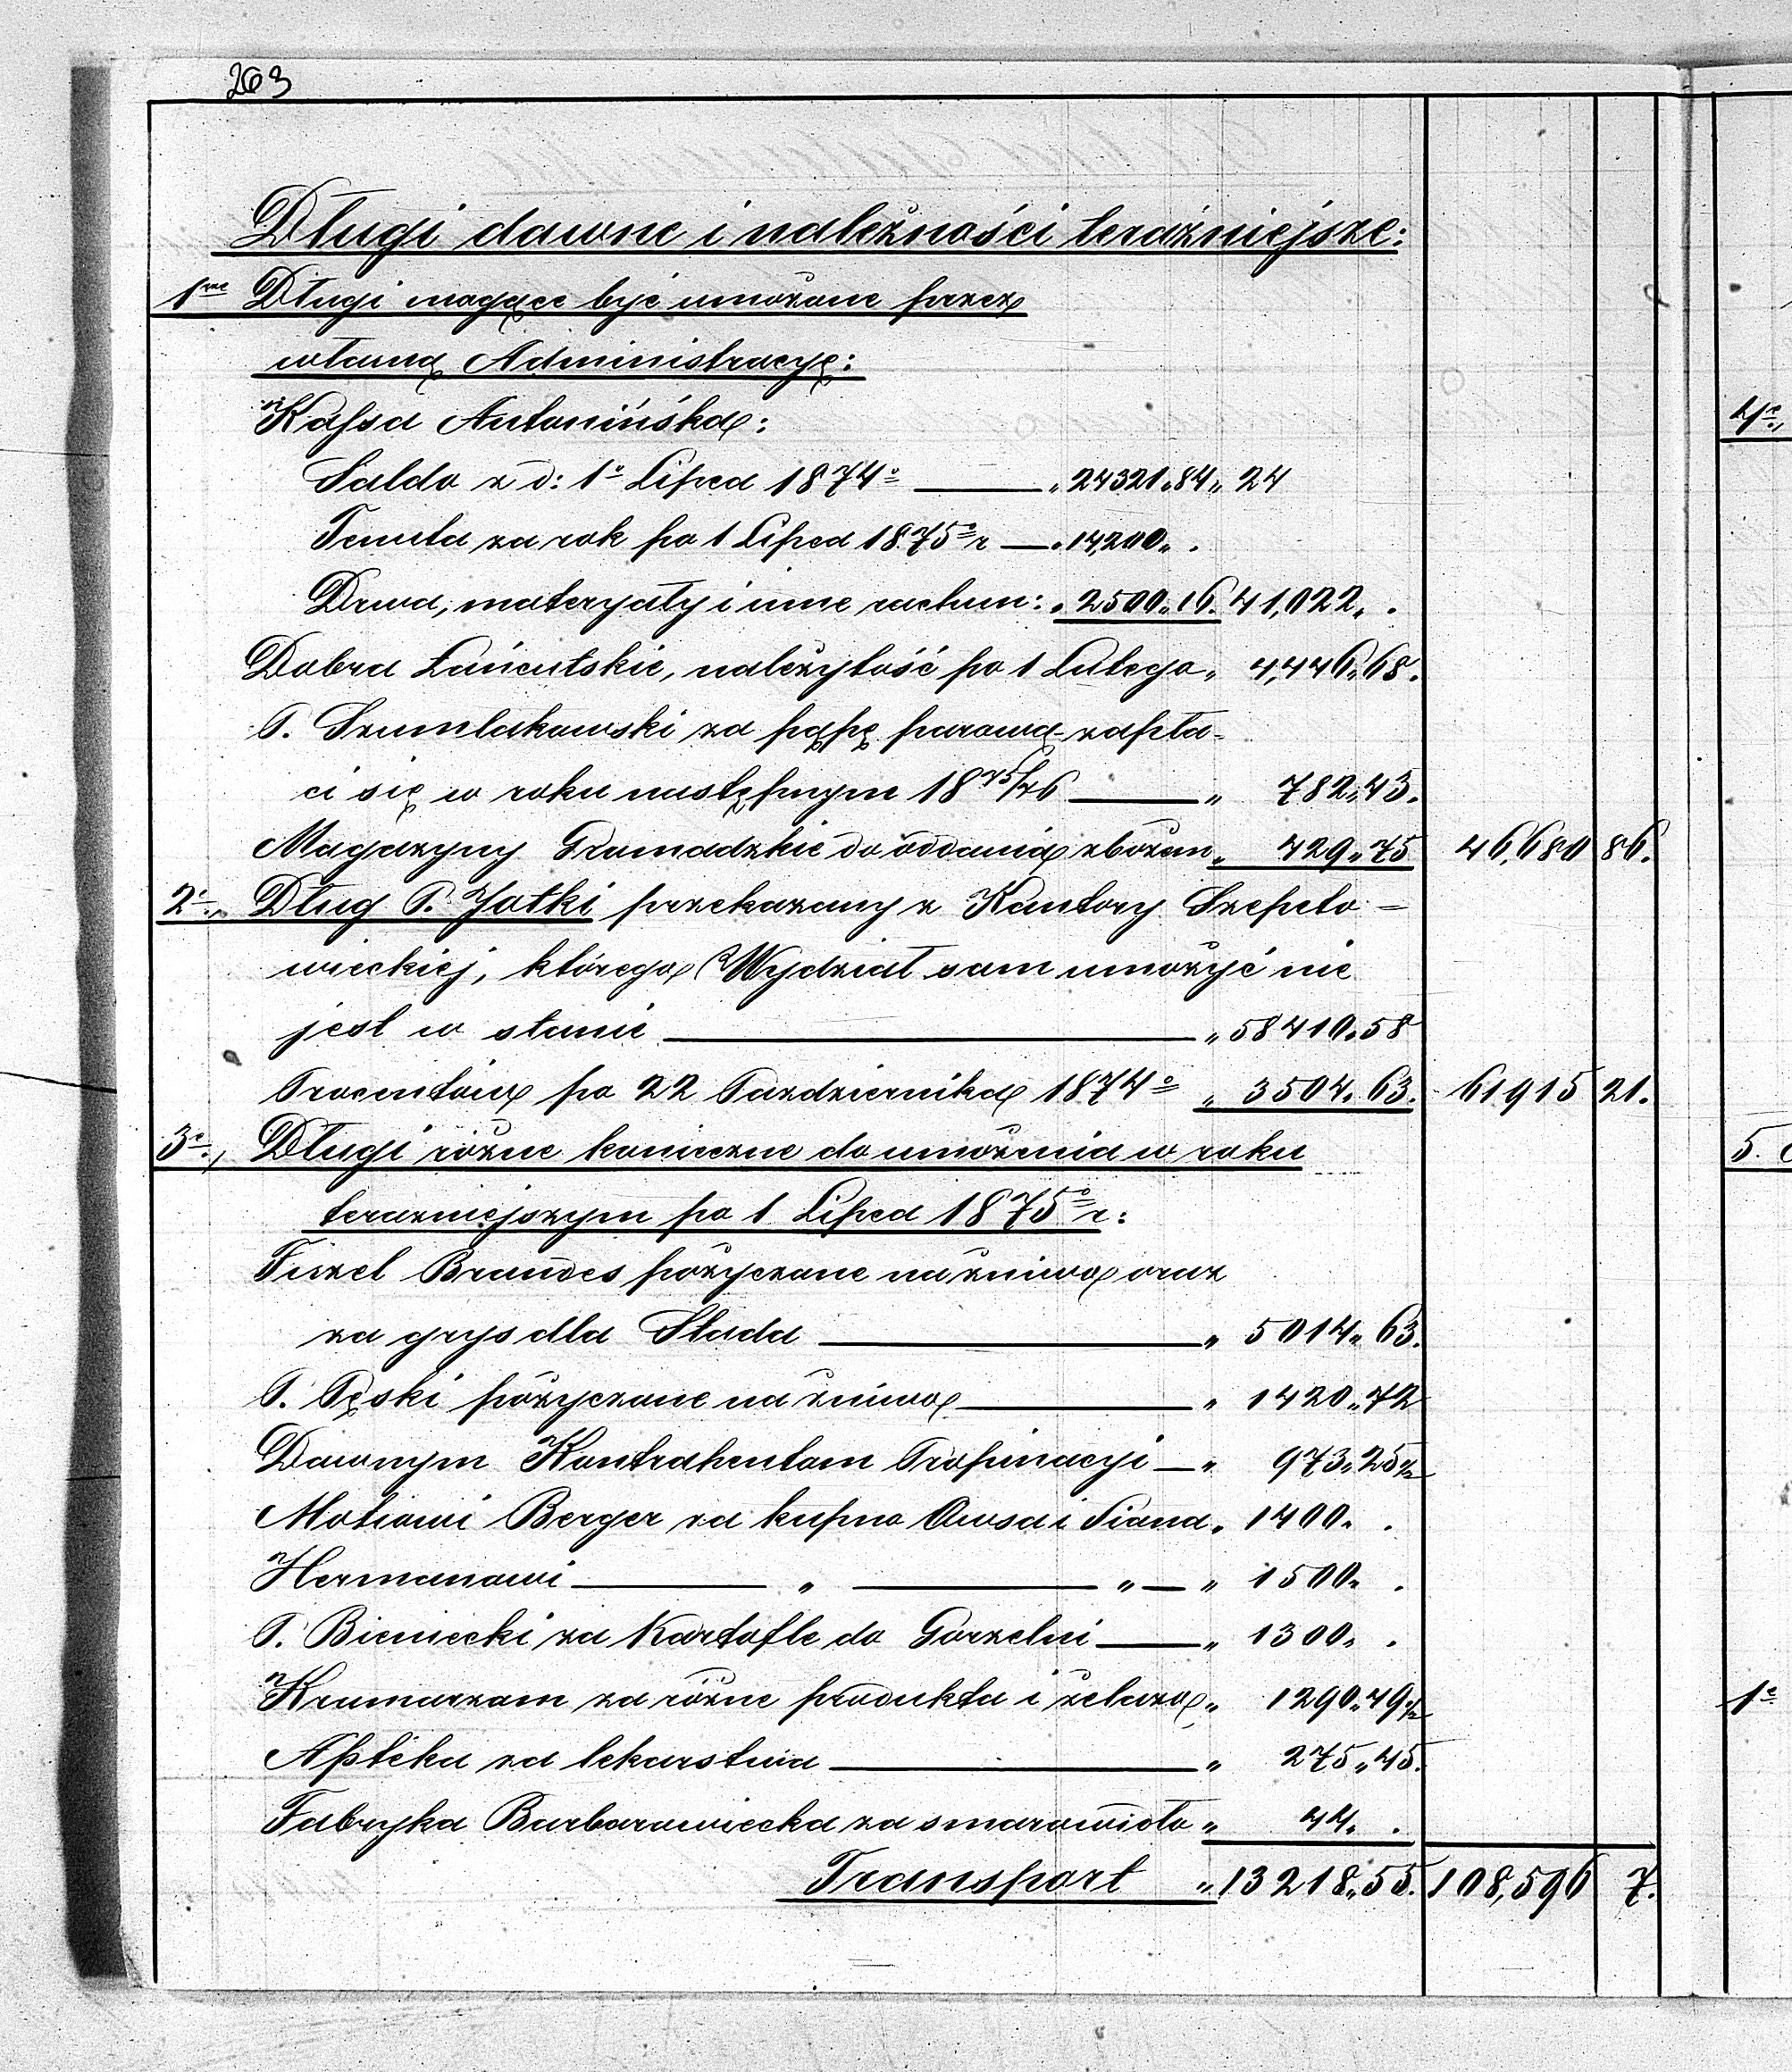 263
Długi dawne i należności teraźniejsze:
1me Długi mogące być umożone przez
własną Administracyę:
Kassa Antonińska:
Saldo z d: 1o Lipca 1874o „ 24321 „ 84 „ 24
Tenuta za rok po 1 Lipca 1875o r „ 14,200 „ .
Drwa, materyały i inne rachun: „ 2500 „ 16. 41,022 „ .
Dobra Łańcutskie, należytość po 1 Lutego „ 4,446 „ 68.
P. Szumlakowski za pąpę parową zapła-
ci się w roku następnym 1875/76 „ 782 „ 43.
Magazyny Gromadzkie do oddania zbożem „ 429 „ 75 46,680 86.
2e., Dług P. Jatki przekazany z Kantory Szepeto =
wieckiej, którego Wydział sam umożyć nie
jest w stanie „ 58410 „ 58
Procentów po 22 Pazdziernika 1874o „ 3504 „ 63. 61915 21.
3e., Długi różne konieczne do umożenia w roku
terazniejszym po 1 Lipca 1875o r:
Fiszel Brandes pożyczone na żniwo oraz
za grys dla Stada „ 5014 „ 63.
P. Pęski pożyczone na żniwo „ 1420 „ 72
Dawnym Kontrahentom Propinacyi „ 973 „ 25½
Motiowi Berger za kupno Owsa i Siana „ 1400 „ .
Hermanowi „ „ „ 1500 „ .
P. Bieniecki za Kartofle do Gorzelni „ 1300 „ .
Kramarzom za różne produkta i żelazo „ 1290 „ 49½
Apteka za lekarstwa „ 275 „ 45.
Fabryka Barbarowiecka za smarowidło „ 44 „ .
Transport „ 13218 „ 55. 108,596 7.
4e.,
5.
1e